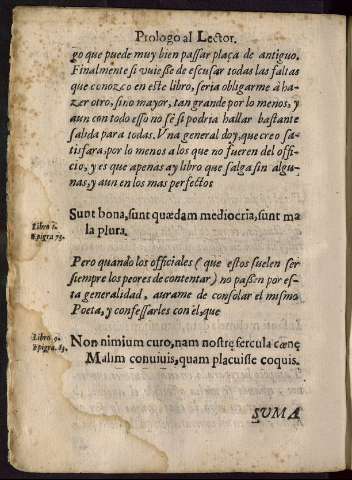 Prologo al Lector.
go que puede muy bien passar plaça de antiguo.
Finalmente si vuiesse de escusar todas las faltas
que conozco en este libro, seria obligarme à ha-
zer otro, sino mayor, tan grande por lo menos, y
aun con todo esso no sé si podria hallar bastante
salida para todas. Vna general doy, que creo sa-
tisfara, por lo menos a los que no fueren del offi-
cio, y es que apenas ay libro que salga sin algu-
nas, y aun en los mas perfectos
Libro 1.
Epigra 75.
Sunt bona, sunt quædam mediocria, sunt ma
la plura.
Pero quando los officiales (que estos suelen ser
siempre los peores de contentar) no passen por es-
ta generalidad, aurame de consolar el mismo
Poeta, y confessarles con el, que
Libro 9.
Epigra. 83.
Non nimium curo, nam nostre fercula cœnę
Malim conuiuis, quam placuisse coquis.
SVMA